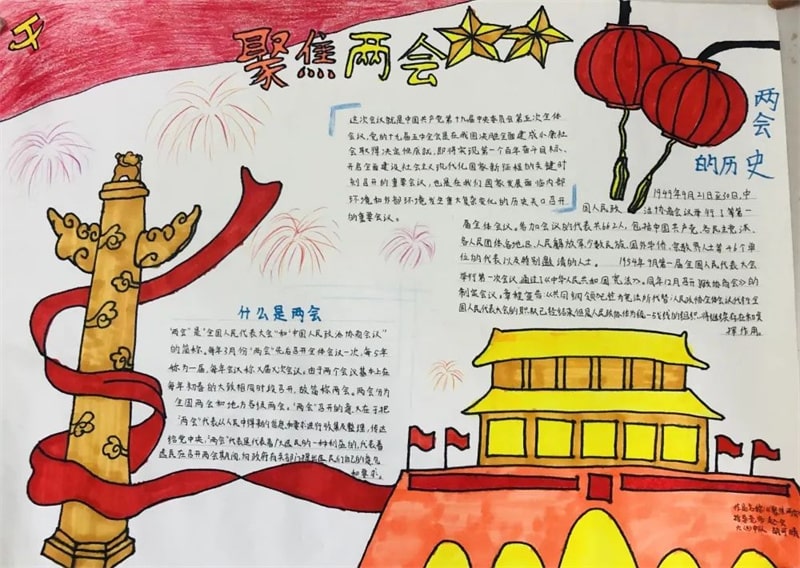 聚焦两会
这次会议就是中国共产党第十九届中央委员会第五次全体
会议,党的十九届五中全会是在我国决胜全面建成小康社
会取得决定性成就,即将实现第一个百年奋斗目标、
开启全面建设社会主义现代化国家新征程的关键时
刻召开的重要会议,也是在我们国家发展面临内部
环境和外部环境发生重大复杂变化的历史关口召开
的重要会议。
两会
的历史
1949年9月21日至30日,中
国人民政 法协商会议举行了第一
届全体会议。参加会议的代表共662人,包括中国共产党、各民主党派、
各人民团体、各地区、人民解放军、少数民族、国外华侨、宗教界人士等46个单
位的代表以及特别邀请的人士。 1954年9月第一届全国人民代表大会
举行第一次会议,通过了《中华人民共和国宪法》。同年12月召开
的制定会议。
国人民代表大会的职权已经结束,但是人民政协作为统一战线的组织,将继续存在和发
挥作用。
什么是两会
“两会”是“全国人民代表大会”和“中国人民政治协商会议”
的简称。每年3月份“两会”先后召开全体会议一次,每5年
称为一届,每年会议称X届X次会议。由于两个会议基本上在
每年初春的大致相同时段召开,故简称两会。两会分为
全国两会和地方各级两会。“两会”召开的意义在于把
“两会”代表从人民中得来的信息和要求进行收集及整理,传达
给党中央,“两会”代表是代表着广大选民的一种利益的,代表着
选民在召开两会期间,向政府有关部门提出选民们自己的意见
和要求。
作品名称:《聚焦两会》
指导老师: